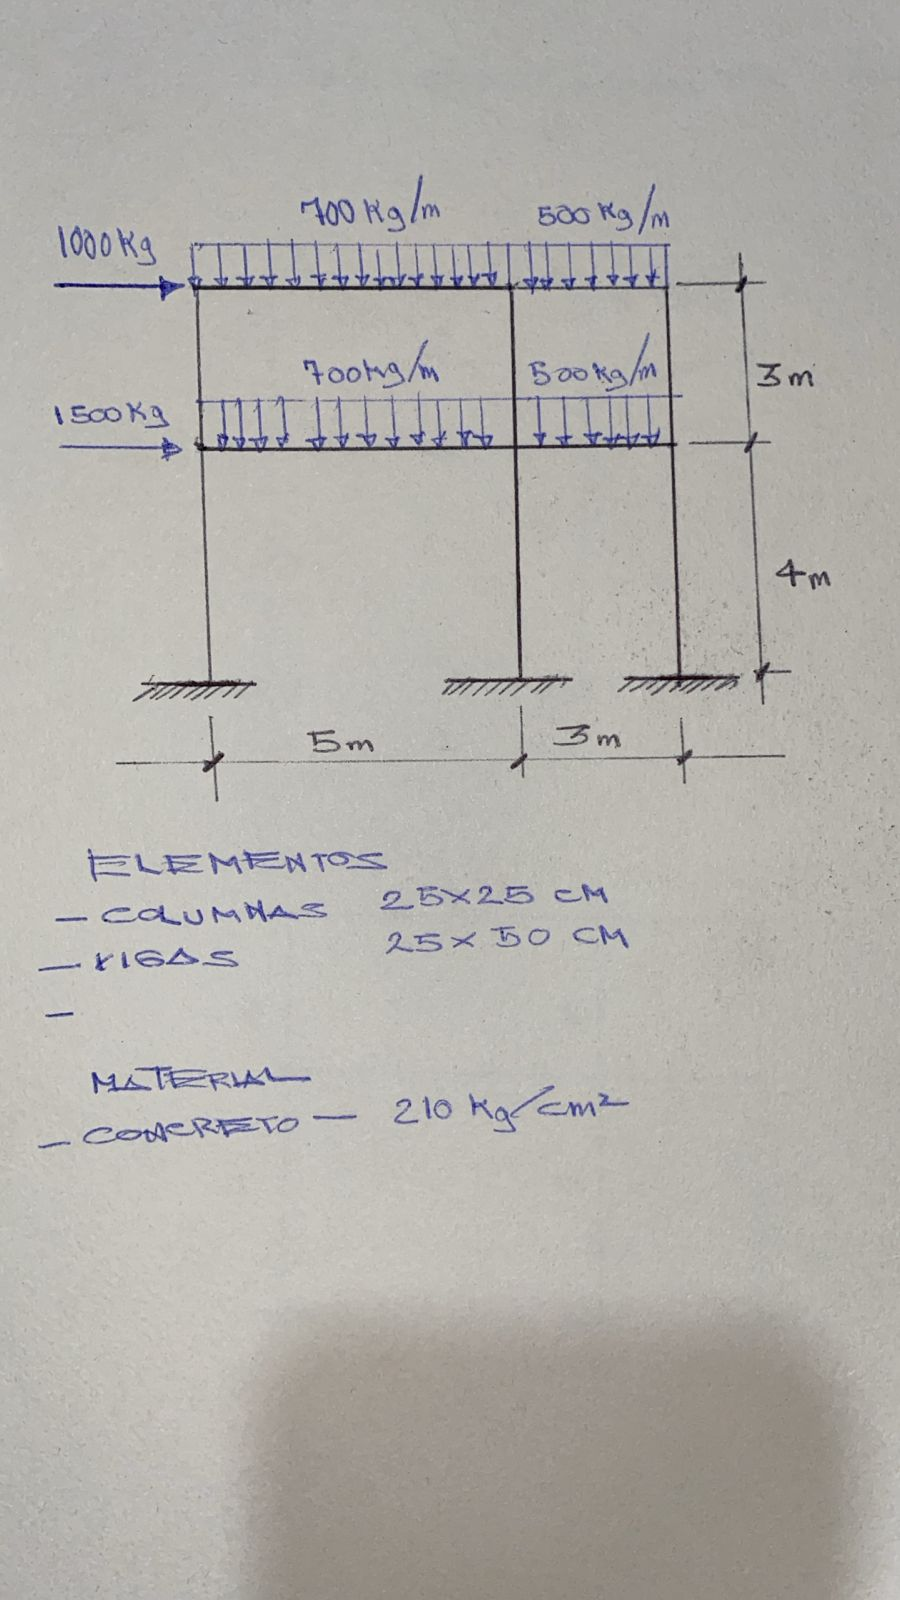 700 Kg/m
500 Kg/m
1000 Kg
700 Kg/m
500 Kg/m
1500 Kg
3m
4m
5m
3m
ELEMENTOS
- COLUMNAS 25x25 CM
- VIGAS 25x50 CM
-
MATERIAL
- CONCRETO - 210 Kg/cm²